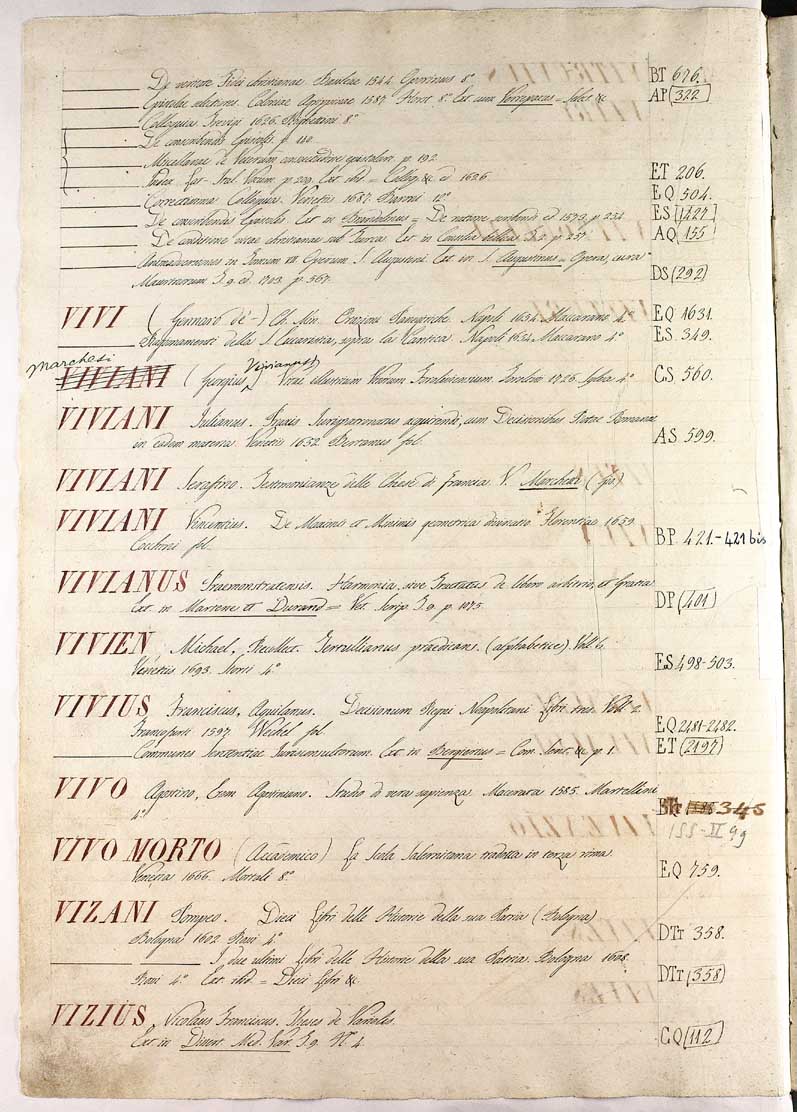 De veritate Fidei christianae. Basileae 1544. Oporinus 8° BT 676.
Epistolae selectiores. Coloniae Agrippinae 1587. Horst 8° Ext. cum Verrepaeus = Select. &c AP 322
Colloquia 1626. 8°
De conscribendis Epistolis. p. 110
Miscellanea de Veterum consuetudine epistolari p. 192
Index Lat-Ital. Vocum. p. 209. Ext. ibid = Colloq. &c. ed. 1626 ET 206.
Correctissima Colloquia. Venetiis 1687. 12° EQ 504.
De conscribendis Epistolis. Ext. in Brandolinus = De ratione scribendi ed 1573. p. 234 ES 1427
De conditione vitae christianae sub Turca. Ext. in p. 257. AQ 155
Animadversiones in Operum S. Augustini. Ext. in S. Augustinus = Opera, cura
Maurinorum T. 9. ed. 1703. p. 567. DS 292
VIVI (Gennaro de'-) Ch. Min. Orazioni Panegiriche. Napoli 1654. Maccarano 4° EQ 1631.
della S. Eucaristia, sopra la Cantica. Napoli 1654. Maccarano 4° ES 349.
Marchesi
VIVIANI (Georgius) Vivianus Vitae illustrium Virorum Foroliviensium. Forolivii 1726. Sylva 4° CS 560.
VIVIANI Julianus. Praxis Iurispatronatus acquirendi, cum Decisionibus Rotae Romanae
in eadem materia. Venetiis 1652. Bertanus fol. AS 599.
VIVIANI Serafino. Testimonianze delle Chiese di Francia. V. Marchetti
VIVIANI Vincentius. De Maximis et Minimis geometrica divinatio. Florentiae 1659.
fol. BP. 421.-421 bis
VIVIANUS Praemonstratensis. Harmonia, sive Tractatus de libero arbitrio, et Gratia
Ext. in Martene et Durand = Vet. Scrip. T. 9. p. 1075. DP 401
VIVIEN, Michael, Recollect. Tertullianus praedicans. (alphabetice). Voll. 6.
Venetiis 1693. Storti 4° ES. 498-503.
VIVIUS Franciscus, Aquilanus. Decisionum Regni Neapolitani Libri tres. Voll 2.
Francofurti 1597. Wechel fol. EQ 2481-2482.
Communes Sententiae Jurisconsultorum. Ext. in = Com. Sent. &c. p. 1. ET 2197
VIVO Agostino, Erem. Agostiniano. Studio di vera sapienza. Macerata 1585. Martellini
4° 345
155-II 99
VIVO MORTO (Accademico) La Scola Salernitana tradotta in terza rima.
Venezia 1666. 8° EQ 759.
VIZANI Pompeo. Dieci Libri delle Historie della sua Patria (Bologna)
Bologna 1602 Rossi 4° DTT 358.
I due ultimi Libri delle Historie della sua Patria. Bologna 1608.
Rossi 4° Ext. ibid = Dieci Libri &c. DTT 358
VIZIUS Nicolaus Franciscus. Theses de Variolis.
Ext. in Dissert. Med. Var. T. 9. N° 4 CQ 112